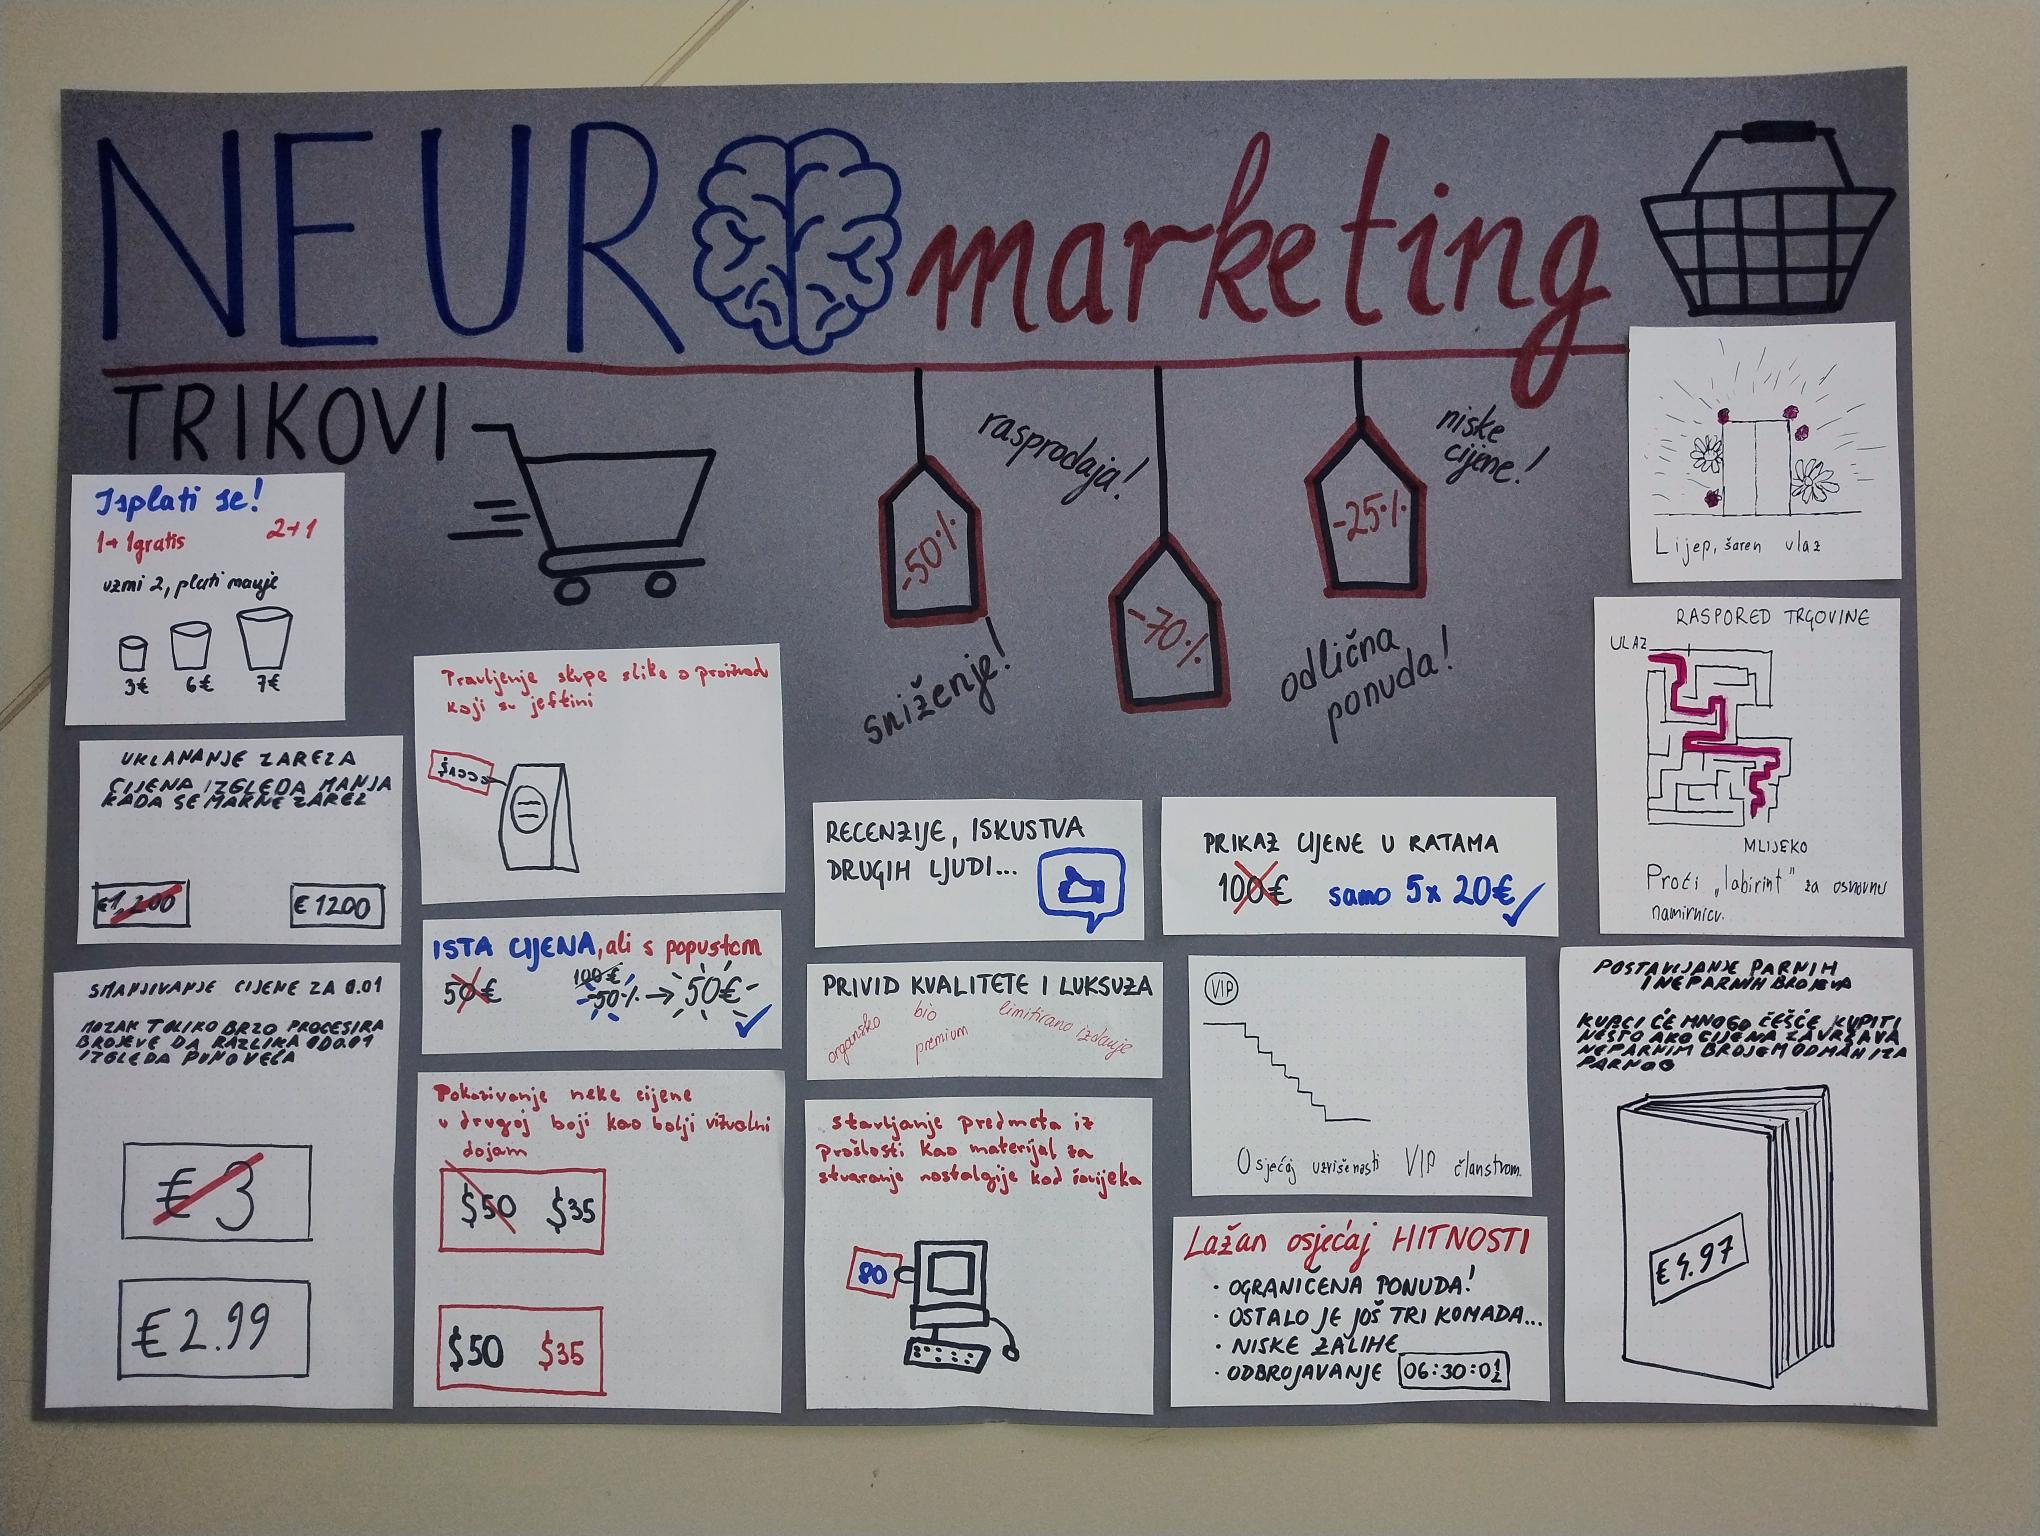 NEUR marketing
TRIKOVI
rasprodaja!
niske
cijene!
-50%
-70%
-25%
sniženje!
odlična
ponuda!
Isplati se!
1+1gratis 2+1
uzmi 2, plati manje
3€ 6€ 7€
UKLANANJE ZAREZA
CIJENA IZGLEDA MANJA
KADA SE MAKNE ZAREZ
€1,200 €1200
SMANJIVANJE CIJENE ZA 0.01
MOZAK TOLIKO BRZO PROCESIRA
BROJEVE DA RAZLIKA OD 0.01
IZGLEDA PUNO VEĆA
€3
€2.99
Pravljenje skupe slike o proizvod
koji su jeftini
ISTA CIJENA, ali s popustom
50€ 100€
-50% → 50€
Pokazivanje neke cijene
u drugoj boji kao bolji vizualni
dojam
$50 $35
$50 $35
RECENZIJE, ISKUSTVA
DRUGIH LJUDI...
PRIVID KVALITETE I LUKSUZA
organsko bio premium limitirano izdanje
stavljanje predmeta iz
prošlosti kao materijal za
stvaranje nostalgije kod čovjeka
80
PRIKAZ CIJENE U RATAMA
100€ samo 5x 20€
VIP
Osjećaj uzvišenosti VIP članstvom.
Lažan osjećaj HITNOSTI
· OGRANIČENA PONUDA!
· OSTALO JE JOŠ TRI KOMADA...
· NISKE ZALIHE
· ODBROJAVANJE 06:30:01
Lijep, šaren ulaz
RASPORED TRGOVINE
ULAZ
MLIJEKO
Proći „labirint" za osnovnu
namirnicu.
POSTAVLJANJE PARNIH
I NEPARNIH BROJEVA
KUPCI ĆE MNOGO ČEŠĆE KUPITI
NEŠTO AKO CIJENA ZAVRŠAVA
NEPARNIM BROJEM ODMAH IZA
PARNOG
€4.97